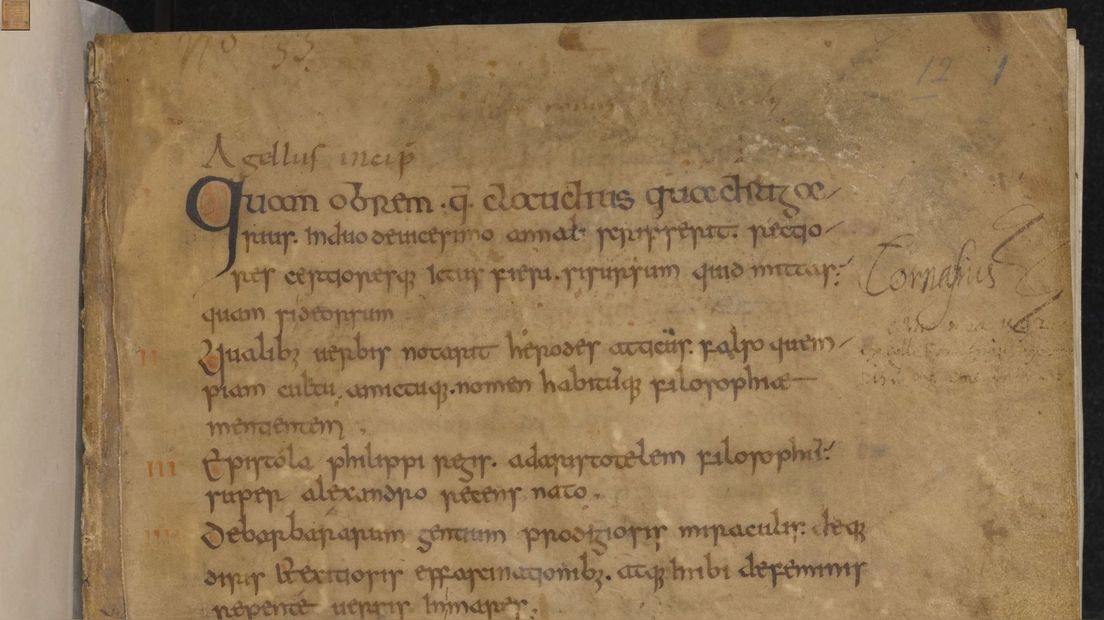 No 53
12 1
Agellus incip̄
Quam obrem. q̄. claudius quadrigae-
rius. In duodevicesimo annali scripserit. rectio-
res certioresq; Ictus fieri. si sursum quid mittas;
quam si deorsum
II Qualib; verbis notarit herodes atticus. falso quem-
piam cultu. amictuq;. nomen habitumq; filosophiae
mentientem.
III Epistola philippi regis. ad aristotelem filosophū.
super alexandro recens nato.
IIII De barbararum gentium prodigiosis miraculis. deq;
diris et exitiosis effascinationib;. atq; inibi de feminis
repente versis In mares.
Cornelius